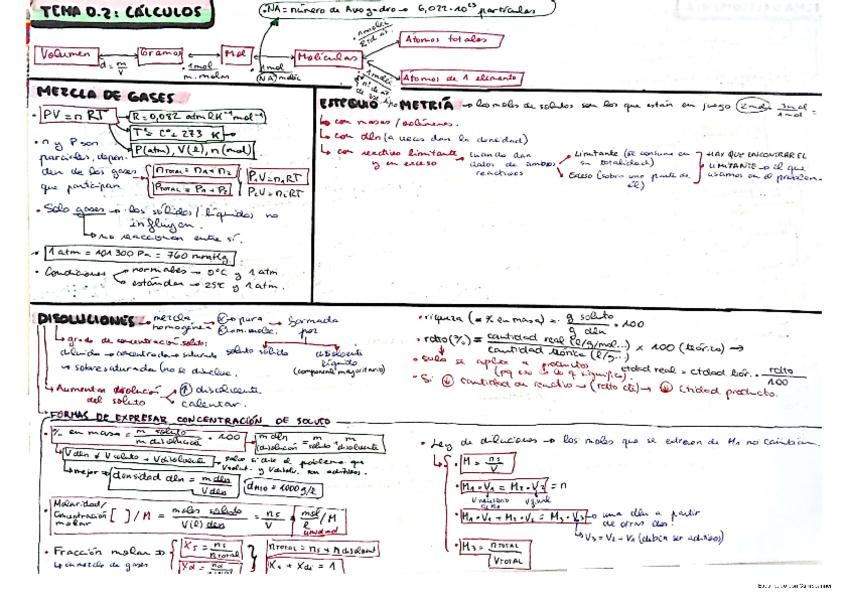 TEMA 0.2: CÁLCULOS
NA = número de Avogadro → 6,022·10²³ partículas
Volumen
d = m/V
Gramos
1mol
m. molar
Mol
1mol
(NA) moléc
Moléculas
Átomos totales
Átomos de 1 elemento
MEZCLA DE GASES
PV = n RT
R = 0,082 atm·l·K⁻¹mol⁻¹
Tª = Cº + 273 K
P(atm), V(l), n(mol)
• n y P son parciales, depen-
den de los gases
que participan
nTOTAL = n1 + n2
PTOTAL = P1 + P2
P1V = n1RT
P2V = n2RT
• Solo gases → los sólidos/líquidos no
influyen.
no reaccionan entre sí.
• 1 atm = 101300 Pa = 760 mmHg.
• Condiciones
normales → 0ºC y 1 atm
estándar → 25ºC y 1 atm.
ESTEQUIOMETRÍA → los mols de solutos son los que están en juego
con masas / volúmenes.
con dln (a veces dan la densidad)
con reactivo limitante
y en exceso
cuando dan
datos de ambos
reactivos
Limitante (se consume en
su totalidad)
Exceso (sobra una parte de
él)
HAY QUE ENCONTRAR EL
LIMITANTE → el que
usamos en el problem.
DISOLUCIONES → mezcla
homogénea
pura
formada
por
soluto sólido
disolvente
líquido
(componente mayoritario)
grado de concentración soluto:
diluida → concentrada → saturada
→ sobresaturada (no se disuelve.
Aumentar disolución
del soluto
disolvente
calentar.
• riqueza (= % en masa) = g soluto / g dln · 100
• rdto (%) = cantidad real (l/g/mol...) / cantidad teórica (l/g...) × 100 (teórico) →
ctdad real = ctdad teór. · rdto/100
• solo se aplica a productos
• Si cantidad de reactivo → (rdto cte) → ctidad producto.
FORMAS DE EXPRESAR CONCENTRACIÓN DE SOLUTO
• % en masa = m soluto / m disolución · 100
m dln = m soluto + m disolvente
Vdln ≠ Vsoluto + Vdisolvente → salvo si dice el problema que
Vsolut. y Vdisolv. son aditivos.
mejor → densidad dln = m dln / V dln
dH2O = 1000 g/l
• Molaridad/
Concentración
molar
[ ]/M = moles soluto / V(l) dln = ns / V
mol/l /M
unidad
• Fracción molar →
en mezcla de gases
Xs = ns / nTOTAL
Xd = nd / nTOTAL
nTOTAL = ns + ndisolvent
Xs + Xd = 1
• Ley de diluciones → los moles que se extraen de M1 no cambian.
• M = ns / V
• M1·V1 = M2·V2 = n
• M1·V1 + M2·V2 = M3·V3 → una dln a partir
de otras dos.
V3 = V2 + V1 (deben ser aditivos)
• M3 = nTOTAL / VTOTAL